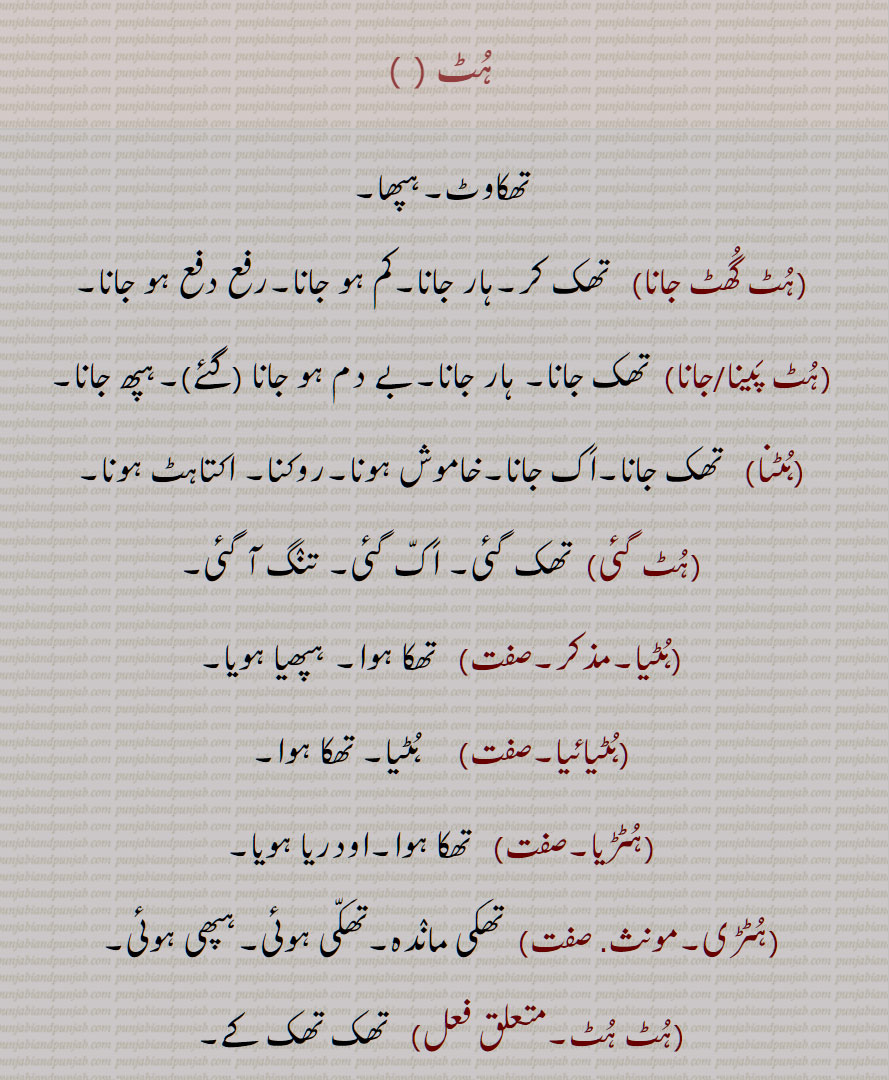 ہُٹ ( )
تھکاوٹ۔ ہپھا۔
(ہُٹ گُھٹ جانا) تھک کر۔ ہار جانا۔ کم ہو جانا۔ رفع دفع ہو جانا۔
(ہُٹ پَینا/جانا) تھک جانا۔ ہار جانا۔ بے دم ہو جانا (گئے)۔ ہپھ جانا۔
(ہُٹنا) تھک جانا۔ اَک جانا۔ خاموش ہونا۔ روکنا۔ اکتاہٹ ہونا۔
(ہُٹ گئی) تھک گئی۔ اَکّ گئی۔ تنگ آ گئی۔
(ہُٹیا۔ مذکر۔ صفت) تھکا ہوا۔ ہپھیا ہویا۔
(ہُٹیائیا۔ صفت) ہُٹیا۔ تھکا ہوا۔
(ہُٹڑیا۔ صفت) تھکا ہوا۔ اودریا ہویا۔
(ہُٹڑی۔ مونث. صفت) تھکی ماندہ۔ تھکّی ہوئی۔ ہپھی ہوئی۔
(ہُٹ ہُٹ۔ متعلق فعل) تھک تھک کے۔